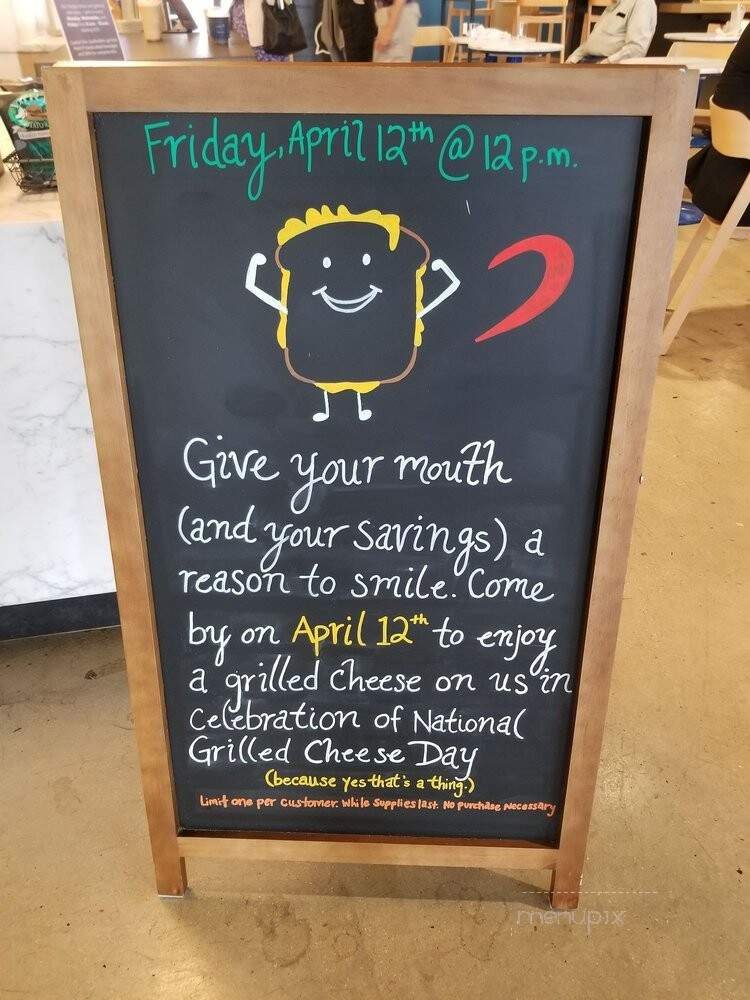 Friday, April 12th @ 12 p.m.
Give your mouth
(and your savings) a
reason to smile. Come
by on April 12th to enjoy
a grilled cheese on us in
Celebration of National
Grilled Cheese Day
(because yes that's a thing.)
Limit one per customer. While Supplies last. No purchase Necessary
menupix